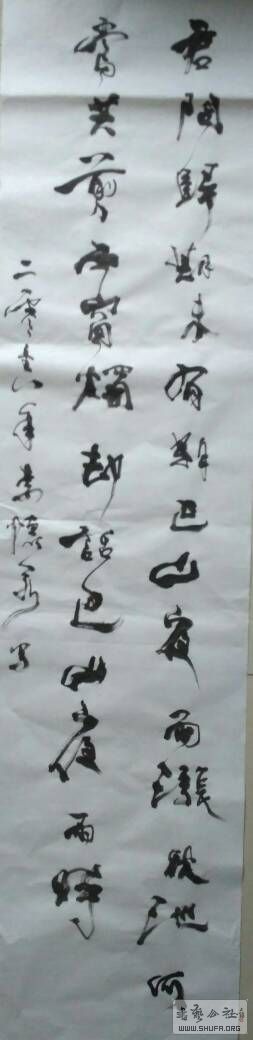 君問歸期未有期巴山夜雨漲秋池何
當共剪西窗燭却話巴山夜雨時
二零壹八年
書藝公社
WWW.SHUFA.ORG